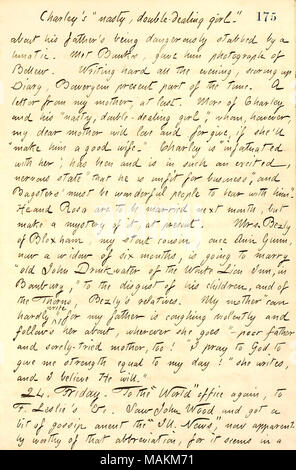 Charley's "nasty, double-dealing girl."
175
about his father's being dangerously stabbed by a
lunatic. Met Banks, gave him photograph of
Bellew. Writing hard all the evening, scoring up
Diary, Boweryem present part of the time. A
letter from my mother, at last. More of Charley
and his "nasty, double-dealing girl", whom, however,
my dear mother will love and forgive, if she'll
"make him a good wife." Charley is "infatuated
with her; has been and is in such an excited,
nervous state that he is unfit for business", and
Bagsters' must be wonderful people to bear with him."
He and Rosa are to be married next month, but
make a mystery of it, at present. Mrs. Bezly
of Bloxham, my stout cousin, one Ann Gunn,
now a widow of six months, is going to marry
"old John Drinkwater of the White Lion Inn, in
Banbury," to the disgust of his children, and of
the Thorns, Bezly's relatives. My mother can
hardly write for my father is coughing violently and
follows her about, wherever she goes – poor father
and sorely-tried mother, too! "I pray to God to
give me strength equal to my day!" she writes,
and I believe He will."
24. Friday. To the "World" office again, to
F. Leslie's &c. Saw John Wood and got a
bit of gossip anent the "Ill. News," now apparently
worthy of that abbreviation, for it seems in a
alamy
Image ID: MAKM71
www.alamy.com